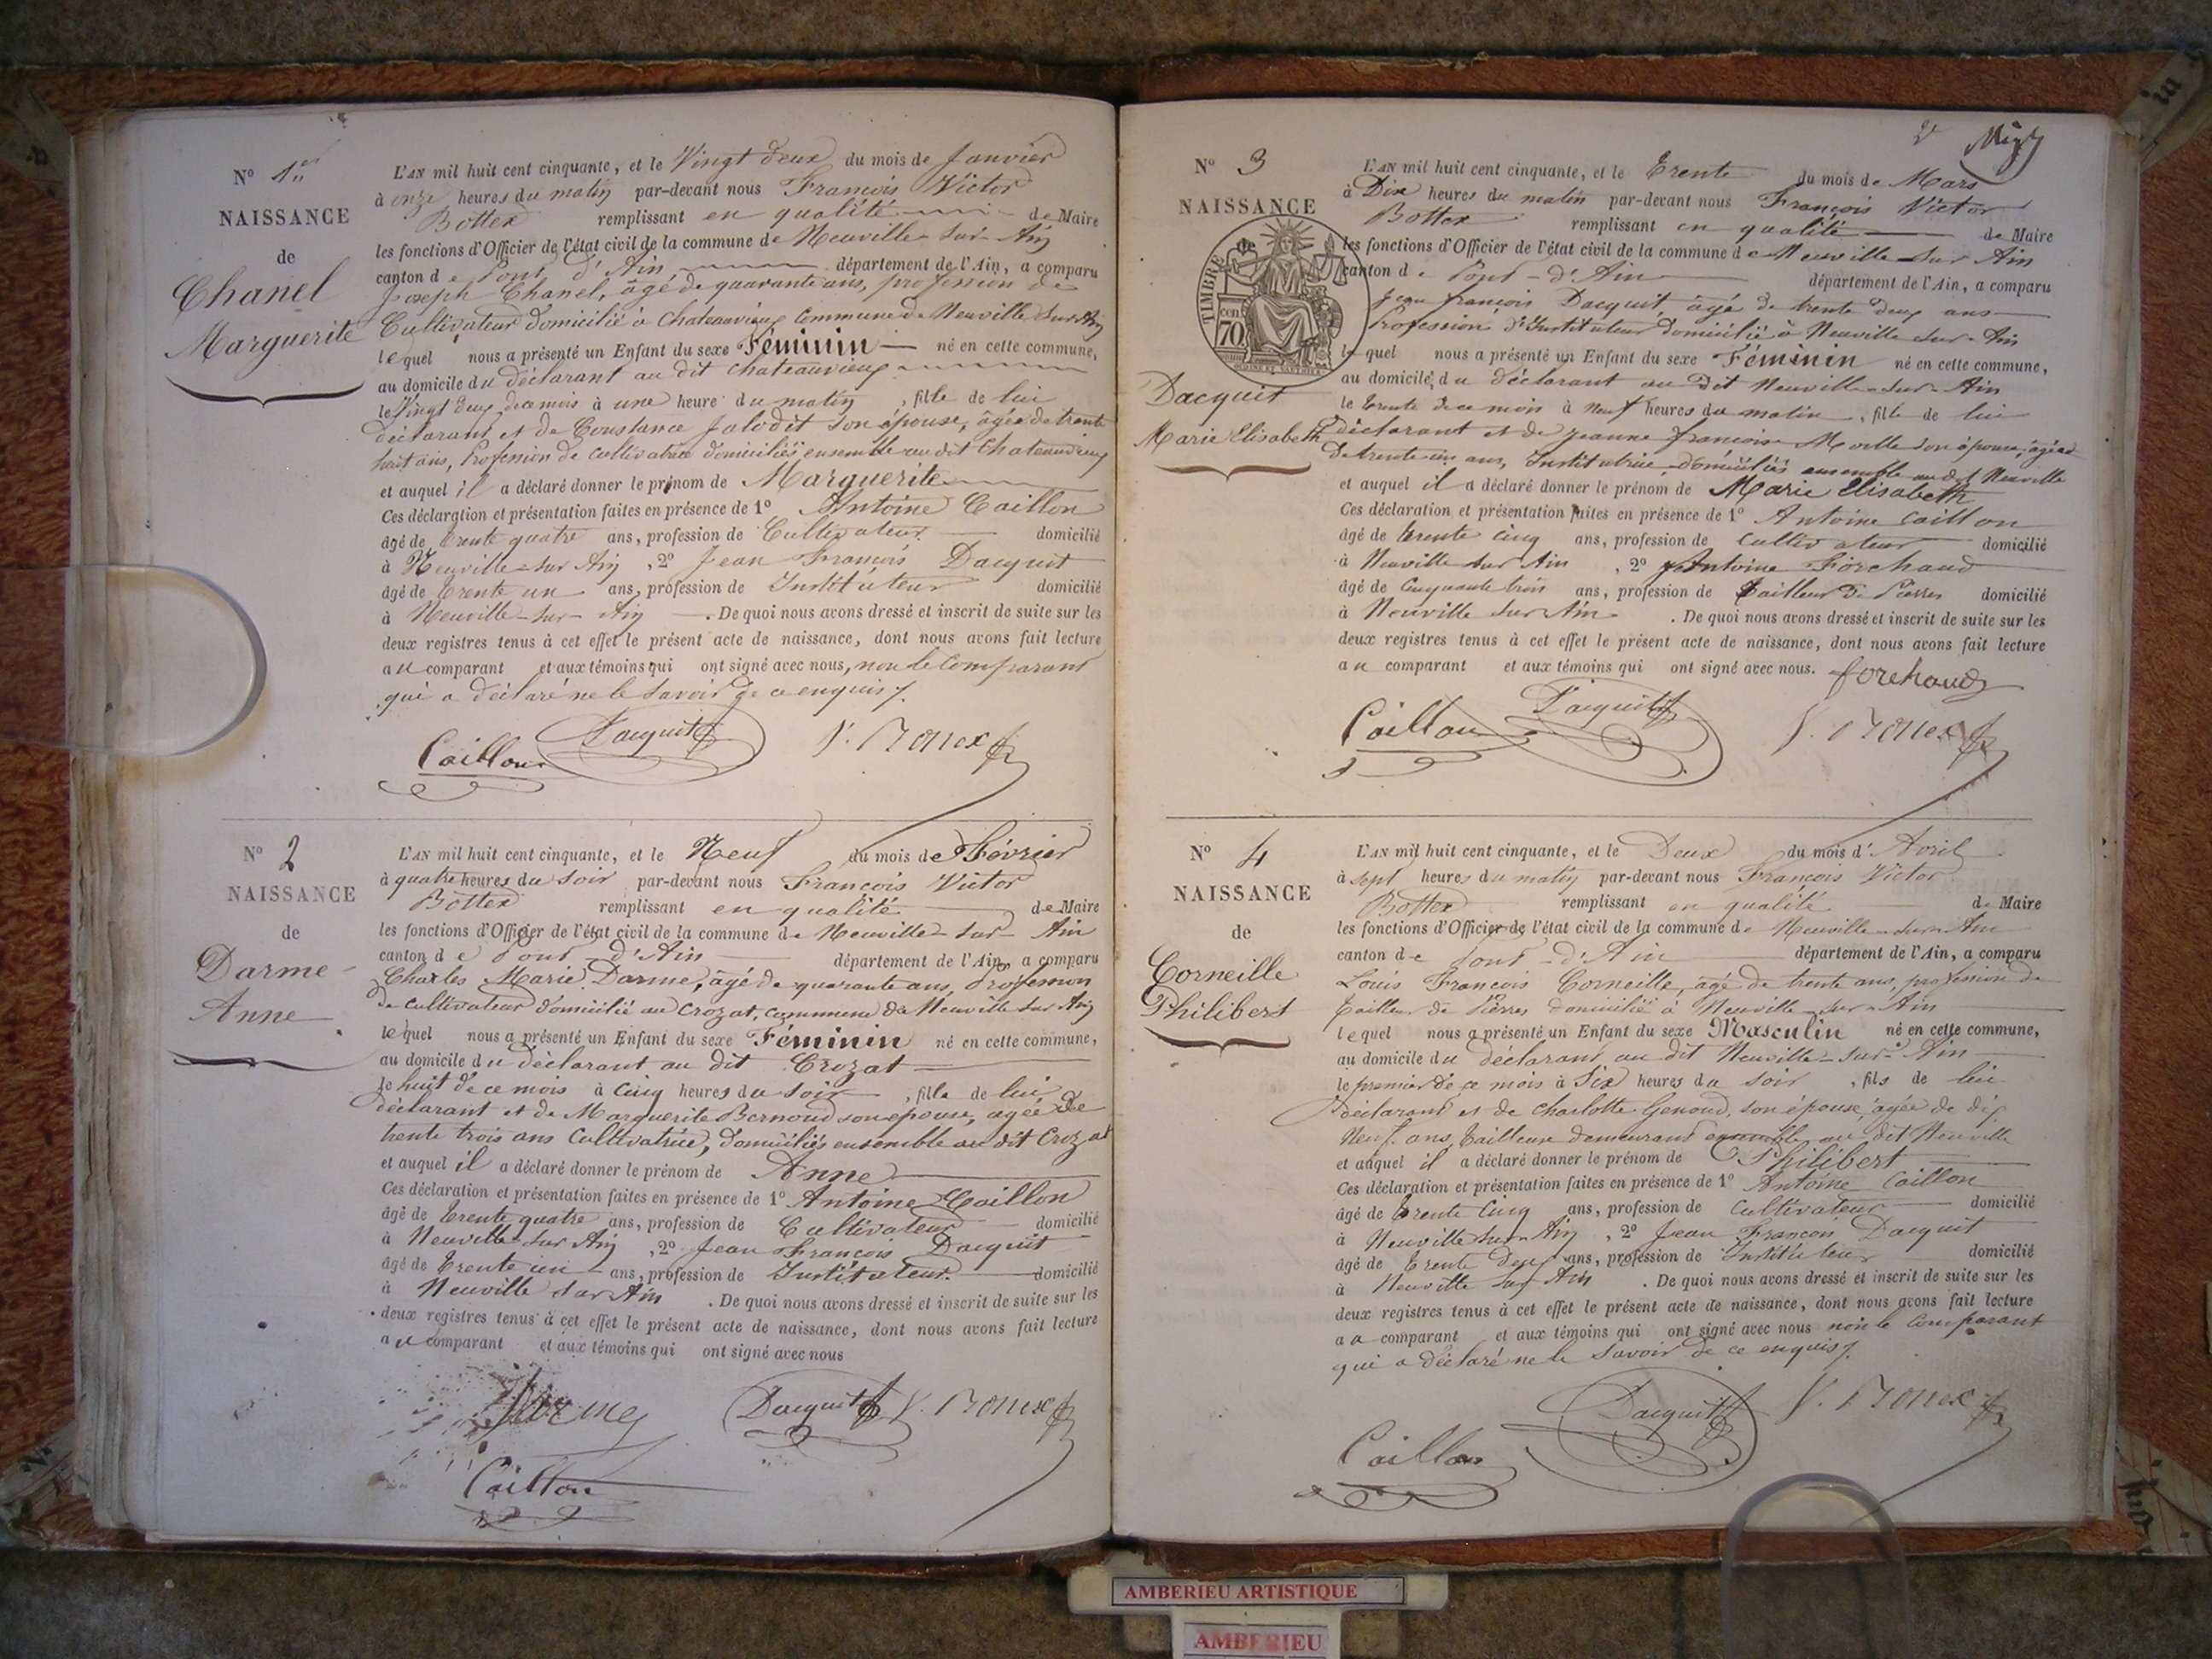 N° 1er
NAISSANCE
de
Chanel
Marguerite
L'AN mil huit cent cinquante, et le Vingt deux du mois de Janvier
à onze heures du matin par-devant nous François Victor
Bottex remplissant en qualité de Maire
les fonctions d'Officier de l'état civil de la commune de Neuville-sur-Ain
canton de Pont d'Ain département de l'Ain, a comparu
Joseph Chanel, âgé de quarante ans, profession de
Cultivateur domicilié à Chateauvieux commune de Neuville sur Ain
lequel nous a présenté un Enfant du sexe Féminin né en cette commune,
au domicile du déclarant au dit chateauvieux
le Vingt deux de ce mois à une heure du matin, fille de lui
déclarant et de Constance Jalodit son épouse, âgée de trente
huit ans, Profession de cultivatrice domiciliés ensemble au dit Chateauvieux
et auquel il a déclaré donner le prénom de Marguerite
Ces déclaration et présentation faites en présence de 1° Antoine Caillon
âgé de trente quatre ans, profession de Cultivateur domicilié
à Neuville-sur Ain, 2° Jean François Dacquit
âgé de trente un ans, profession de Instituteur domicilié
à Neuville-sur-Ain. De quoi nous avons dressé et inscrit de suite sur les
deux registres tenus à cet effet le présent acte de naissance, dont nous avons fait lecture
au comparant et aux témoins qui ont signé avec nous, non le comparant
qui a déclaré ne le savoir de ce enquis.
Caillon Dacquit V. Bottex
N° 2
NAISSANCE
de
Darme
Anne
L'AN mil huit cent cinquante, et le Neuf du mois de Février
à quatre heures du soir par-devant nous François Victor
Bottex remplissant en qualité de Maire
les fonctions d'Officier de l'état civil de la commune de Neuville-sur-Ain
canton de Pont-d'Ain département de l'Ain, a comparu
Charles Marie Darme, âgé de quarante ans, Profession
de cultivateur domicilié au Crozat, commune de Neuville sur Ain
lequel nous a présenté un Enfant du sexe Féminin né en cette commune,
au domicile du déclarant au dit Crozat
le huit de ce mois à cinq heures du soir, fille de lui
déclarant et de Marguerite Bernoud son épouse, agée de
trente trois ans Cultivatrice, domiciliés ensemble au dit Crozat
et auquel il a déclaré donner le prénom de Anne
Ces déclaration et présentation faites en présence de 1° Antoine Caillon
âgé de trente quatre ans, profession de Cultivateur domicilié
à Neuville sur Ain, 2° Jean François Dacquit
âgé de Trente un ans, profession de Instituteur domicilié
à Neuville sur Ain. De quoi nous avons dressé et inscrit de suite sur les
deux registres tenus à cet effet le présent acte de naissance, dont nous avons fait lecture
au comparant et aux témoins qui ont signé avec nous
Darme Dacquit V. Bottex
Caillon
2e
N° 3
NAISSANCE
de
TIMBRE
cen. 70
Dacquit
Marie Elisabeth
L'AN mil huit cent cinquante, et le Trente du mois de Mars
à Dix heures du matin par-devant nous François Victor
Bottex remplissant en qualité de Maire
les fonctions d'Officier de l'état civil de la commune de Neuville-sur Ain
canton de Pont-d'Ain département de l'Ain, a comparu
Jean françois Dacquit, âgé de trente deux ans
Profession d'Instituteur domicilié à Neuville sur-Ain
lequel nous a présenté un Enfant du sexe Féminin né en cette commune,
au domicile, du déclarant au dit Neuville-sur-Ain
le trente de ce mois à Neuf heures du matin, fille de lui
déclarant et de Jeanne françoise Morelle son épouse, âgée
de trente un ans, Institutrice domiciliés ensemble au dit Neuville
et auquel il a déclaré donner le prénom de Marie Elisabeth
Ces déclaration et présentation faites en présence de 1° Antoine Caillon
âgé de trente cinq ans, profession de cultivateur domicilié
à Neuville sur Ain, 2° Antoine Forchaud
âgé de cinquante trois ans, profession de Tailleur de Pierres domicilié
à Neuville sur Ain. De quoi nous avons dressé et inscrit de suite sur les
deux registres tenus à cet effet le présent acte de naissance, dont nous avons fait lecture
au comparant et aux témoins qui ont signé avec nous. forchaud
Caillon Dacquit V. Bottex
N° 4
NAISSANCE
de
Corneille
Philibert
L'AN mil huit cent cinquante, et le Deux du mois d'Avril
à sept heures du matin par-devant nous François Victor
Bottex remplissant en qualité de Maire
les fonctions d'Officier de l'état civil de la commune de Neuville-sur-Ain
canton de Pont-d'Ain département de l'Ain, a comparu
Louis François Corneille, agé de trente ans, profession de
tailleur de Pierres domicilié à Neuville-sur-Ain
lequel nous a présenté un Enfant du sexe Masculin né en cette commune,
au domicile du déclarant au dit Neuville-sur-Ain
le premier de ce mois à Six heures du soir, fils de lui
déclarant et de Charlotte Genoud, son épouse, âgée de dix
Neuf ans, tailleuse demeurant ensemble au dit Neuville
et auquel il a déclaré donner le prénom de Philibert
Ces déclaration et présentation faites en présence de 1° Antoine Caillon
âgé de trente cinq ans, profession de Cultivateur domicilié
à Neuville sur Ain, 2° Jean François Dacquit
âgé de trente deux ans, profession de Instituteur domicilié
à Neuville sur Ain. De quoi nous avons dressé et inscrit de suite sur les
deux registres tenus à cet effet le présent acte de naissance, dont nous avons fait lecture
au comparant et aux témoins qui ont signé avec nous non le comparant
qui a déclaré ne le savoir de ce enquis.
Caillon Dacquit V. Bottex
AMBERIEU ARTISTIQUE
AMBERIEU